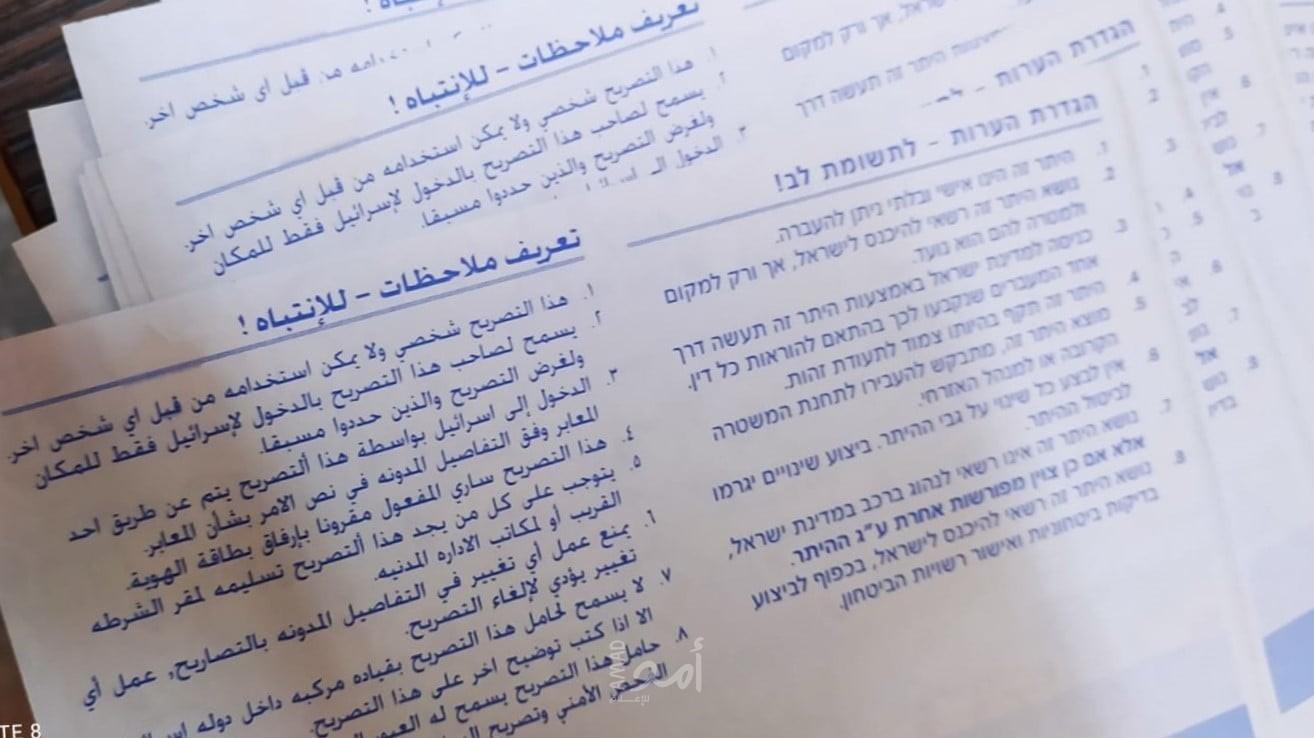 تعريف ملاحظات - للإنتباه !
١. هذا التصريح شخصي ولا يمكن استخدامه من قبل اي شخص اخر.
٢. يسمح لصاحب هذا التصريح بالدخول لإسرائيل فقط للمكان
ولغرض التصريح والذين حددوا مسبقا.
٣. الدخول إلى اسرائيل بواسطة هذا ألتصريح يتم عن طريق احد
المعابر وفق التفاصيل المدونه في نص الامر بشأن المعابر.
٤. هذا التصريح ساري المفعول مقرونا بإرفاق بطاقة الهوية.
٥. يتوجب على كل من يجد هذا ألتصريح تسليمه لمقر الشرطه
القريب أو لمكاتب الاداره المدنيه.
٦. يمنع عمل أي تغيير في التفاصيل المدونه بالتصاريح, عمل أي
تغيير يؤدي لإلغاء التصريح.
٧. لا يسمح لحامل هذا التصريح بقياده مركبه داخل دوله
الا اذا كتب توضيح اخر على هذا التصريح.
٨. حامل هذا التصريح يسمح له
الأمني وتصريح
הגדרת הערות - לתשומת לב!
1. היתר זה הינו אישי ובלתי ניתן להעברה.
2. נושא היתר זה רשאי להיכנס לישראל, אך ורק למקום
ולמטרה להם הוא נועד.
3. כניסה למדינת ישראל באמצעות היתר זה תעשה דרך
אחד המעברים שנקבעו לכך בהתאם להוראות כל דין.
4. היתר זה תקף בהיותו צמוד לתעודת זהות.
5. מוצא היתר זה, מתבקש להעבירו לתחנת המשטרה
הקרובה או למנהל האזרחי.
6. אין לבצע כל שינוי על גבי ההיתר. ביצוע שינויים יגרמו
לביטול ההיתר.
7. נושא היתר זה אינו רשאי לנהוג ברכב במדינת ישראל,
אלא אם כן צוין מפורשות אחרת ע"ג ההיתר.
8. נושא היתר זה רשאי להיכנס לישראל, בכפוף לביצוע
בדיקות ביטחוניות ואישור רשויות הביטחון.
تعريف ملاحظات - للإنتباه !
١. هذا التصريح شخصي ولا يمكن استخدامه من قبل اي شخص اخر.
٢. يسمح لصاحب هذا التصريح بالدخول لإسرائيل فقط للمكان
ولغرض التصريح والذين حددوا مسبقا.
٣. الدخول
הגדרת הערות
ישראל, אך ורק למקום
היתר זה תעשה דרך
من قبل اي شخص اخر.
أمد
للإعلام
AMAD
TE 8